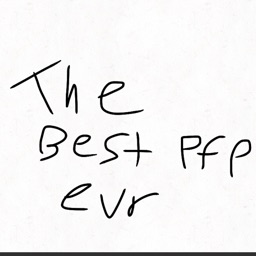 The
Best pfp
evr